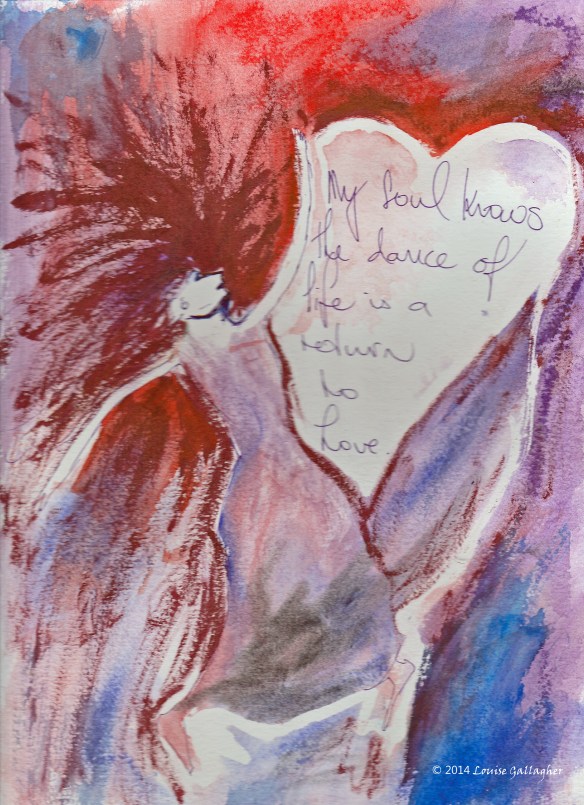 My Soul knows
the dance of
life is a
return
to
Love.
© 2014 Louise Gallagher